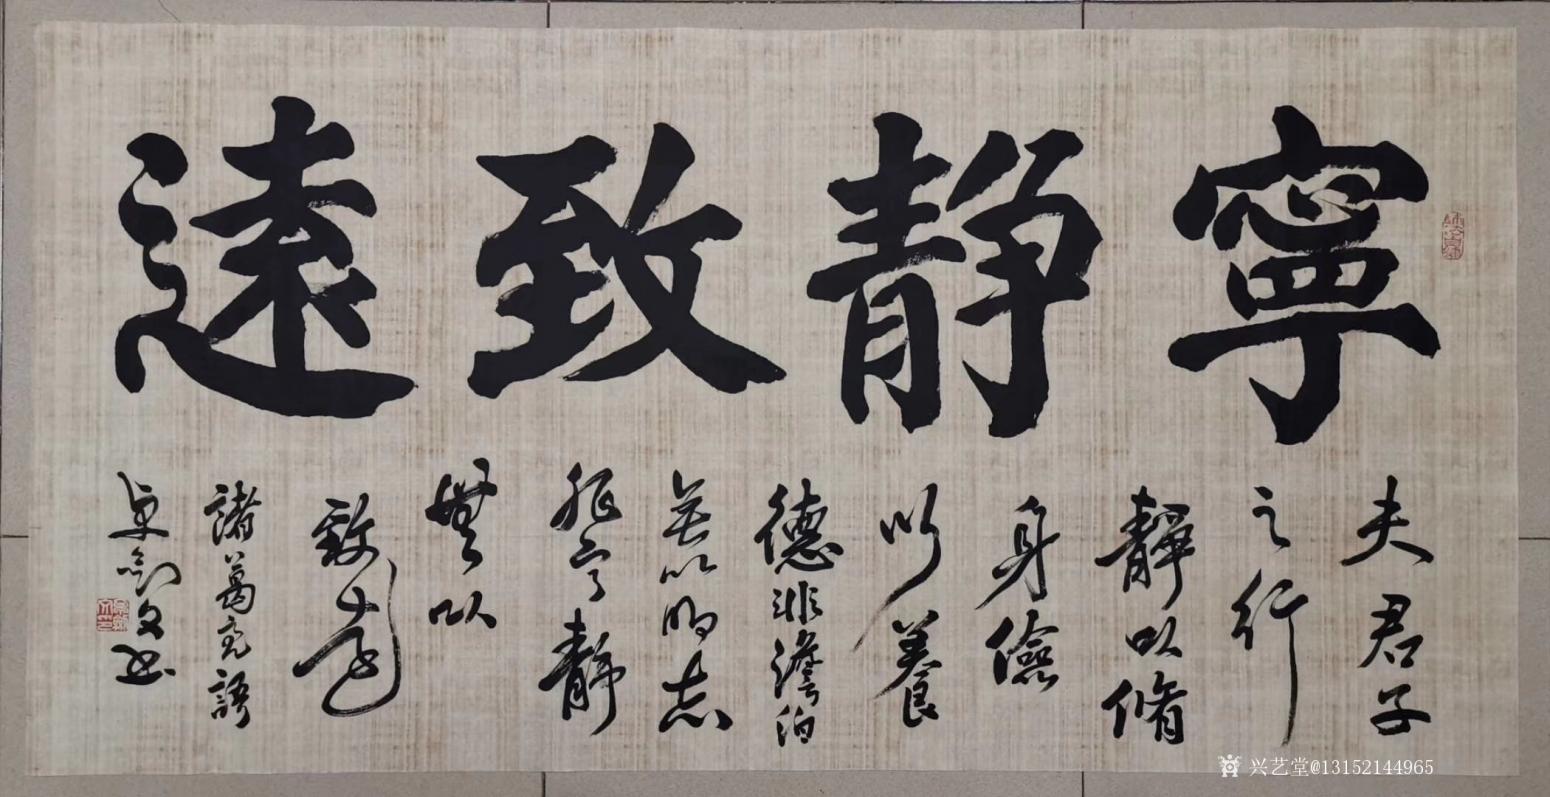 寧静致遠
夫君子
之行
靜以脩
身儉
以養
德非澹泊
無以明志
非寧靜
無以
致遠
諸葛亮語
兴艺堂@13152144965